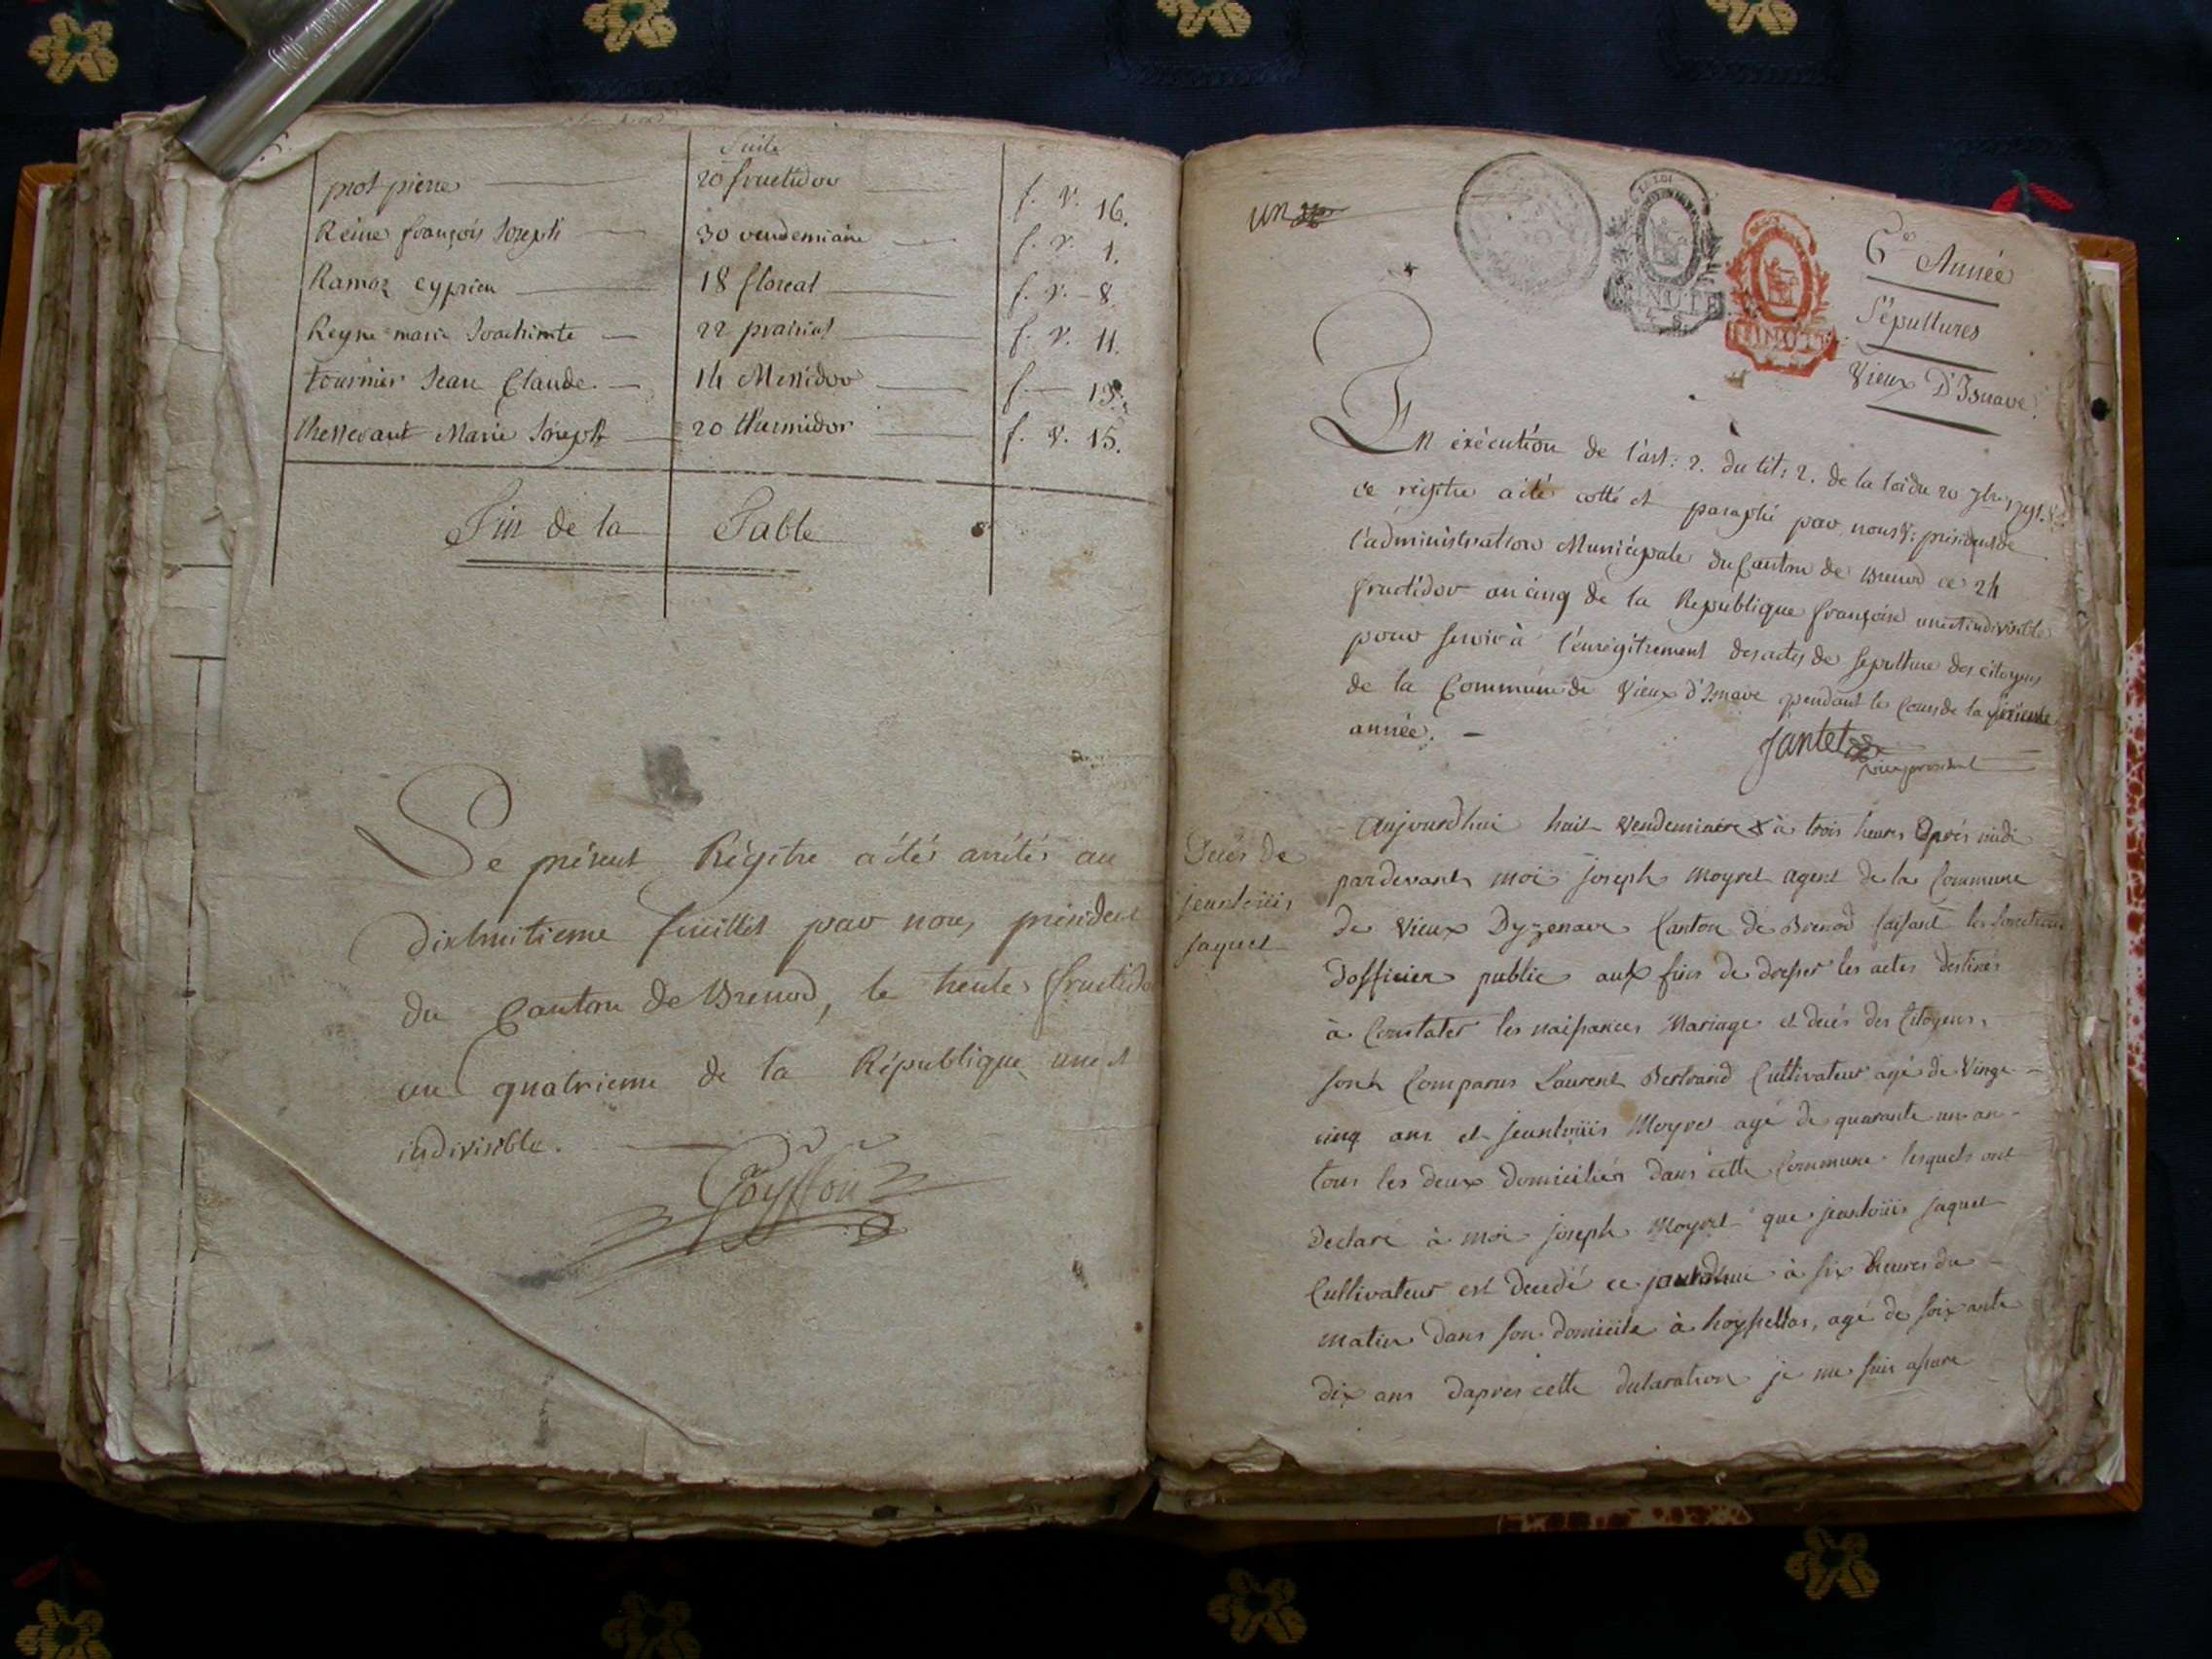 Suite
prost pierre 20 fructidor f. v. 16.
Reine françois Joseph 30 vendemiaire f. v. 1.
Ramoz cyprien 18 floreal f. v. 8.
Reyne marie Joachimte 22 prairial f. v. 11.
tournier Jean Claude 14 Messidor f. 13.
Marie Joseph 20 thermidor f. v. 15.
Fin de la Table
Le présent Régitre a étés arrétés au
dixhuitieme feuillet par nous président
du Canton de Brenod, le trente fructidor
an quatrieme de la République une et
indivisible.
Goyffon
un
MINUTE
MINUTE
6e Année
Sépultures
Vieux D'Isnave.
En exécution de l'art: 2. du tit: 2. de la loi du 20 7bre 1791.
ce régitre a été cotté et paraphé par nous V: président de
l'administration Municipale du Canton de Brenod ce 24
fructidor an cinq de la Republique françoise une et indivisible
pour servir à l'enrégitrement des actes de sepulture des citoyens
de la Commune de Vieux d'Isnave pendant le Cours de la
année.
Jantet
vice president
Decés de
jeanloüis
jaquet
Aujourdhui huit Vendeminire à trois heures Après midi
pardevant moi joseph Moyret agent de la Commune
de Vieux Dyzenave Canton de Brenod faisant les fonctions
Dofficier public aux fins de dresser les actes destinés
à Constater les naissances Mariage et decés des Citoyens,
sont Comparus Laurent Bertrand Cultivateur agé de Vingt
cinq ans et jeanloüis Moyret agé de quarante un an
tous les deux domiciliés dans cette Commune lesquels ont
Declaré à moi joseph Moyret que jeanloüis jaquet
Cultivateur est decedé ce jourdhui à six heures du
matin dans son domicile à , agé de soixante
dix ans dapres cette declaration je me suis assure